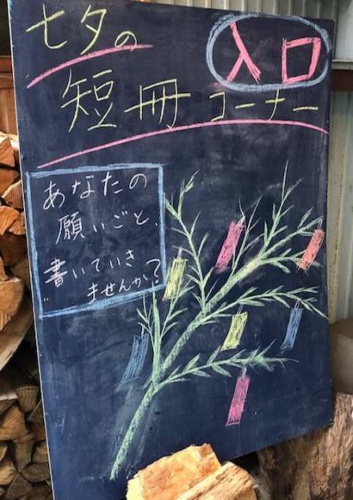 七夕の
入口
短冊コーナー
あなたの
願いごと、
書いていき
ませんか?